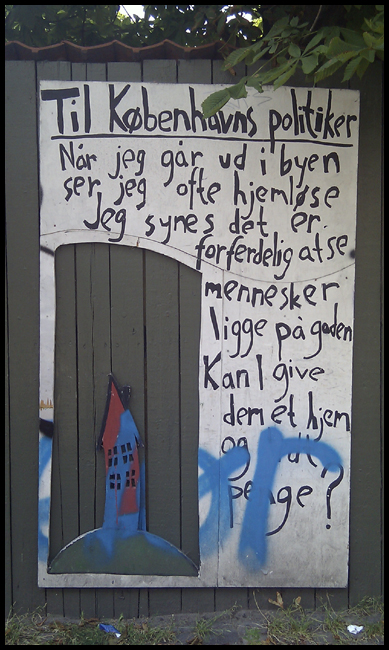 Til Københavns politiker
Når jeg går ud i byen
ser jeg ofte hjemløse
Jeg synes det er
forferdelig at se
mennesker
ligge på gaden
Kan I give
dem et hjem
og
penge?